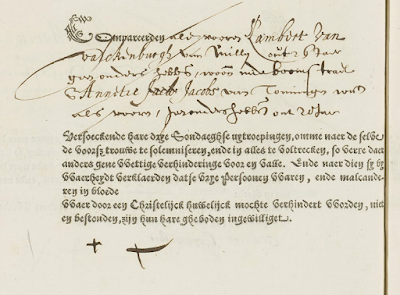 Compareerden als vooren Lambert van
valckenburgh van Tuilly out 26 Jaer
geen ouders hebb, woon inde boomstraet
& Annetie Jacobs van Coninge wo
als vooren, geen ouders hebb out 20 Jaer
Versoeckende hare drye Sondaeghse uytroepingen, omme naer de selve
de voorsz. trouwe te solemniseren, ende in alles te voltrecken, so verre daer
anders gene wettige verhinderinge voor en valle. Ende naer dien sy by
waerheydt verklaerden datse vrye Persoonen waren, ende malcande-
ren in bloede
waer door een Christelijck huwelijck mochte verhindert worden, niet
en bestonden, zijn hun hare gheboden ingewilliget.